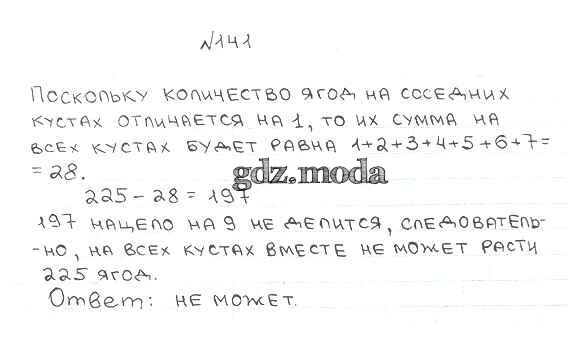 №141
Поскольку количество ягод на соседних
кустах отличается на 1, то их сумма на
всех кустах будет равна 1+2+3+4+5+6+7=
=28.
gdz.moda
225-28=197
197 нацело на 9 не делится, следователь-
-но, на всех кустах вместе не может расти
225 ягод.
Ответ: не может.